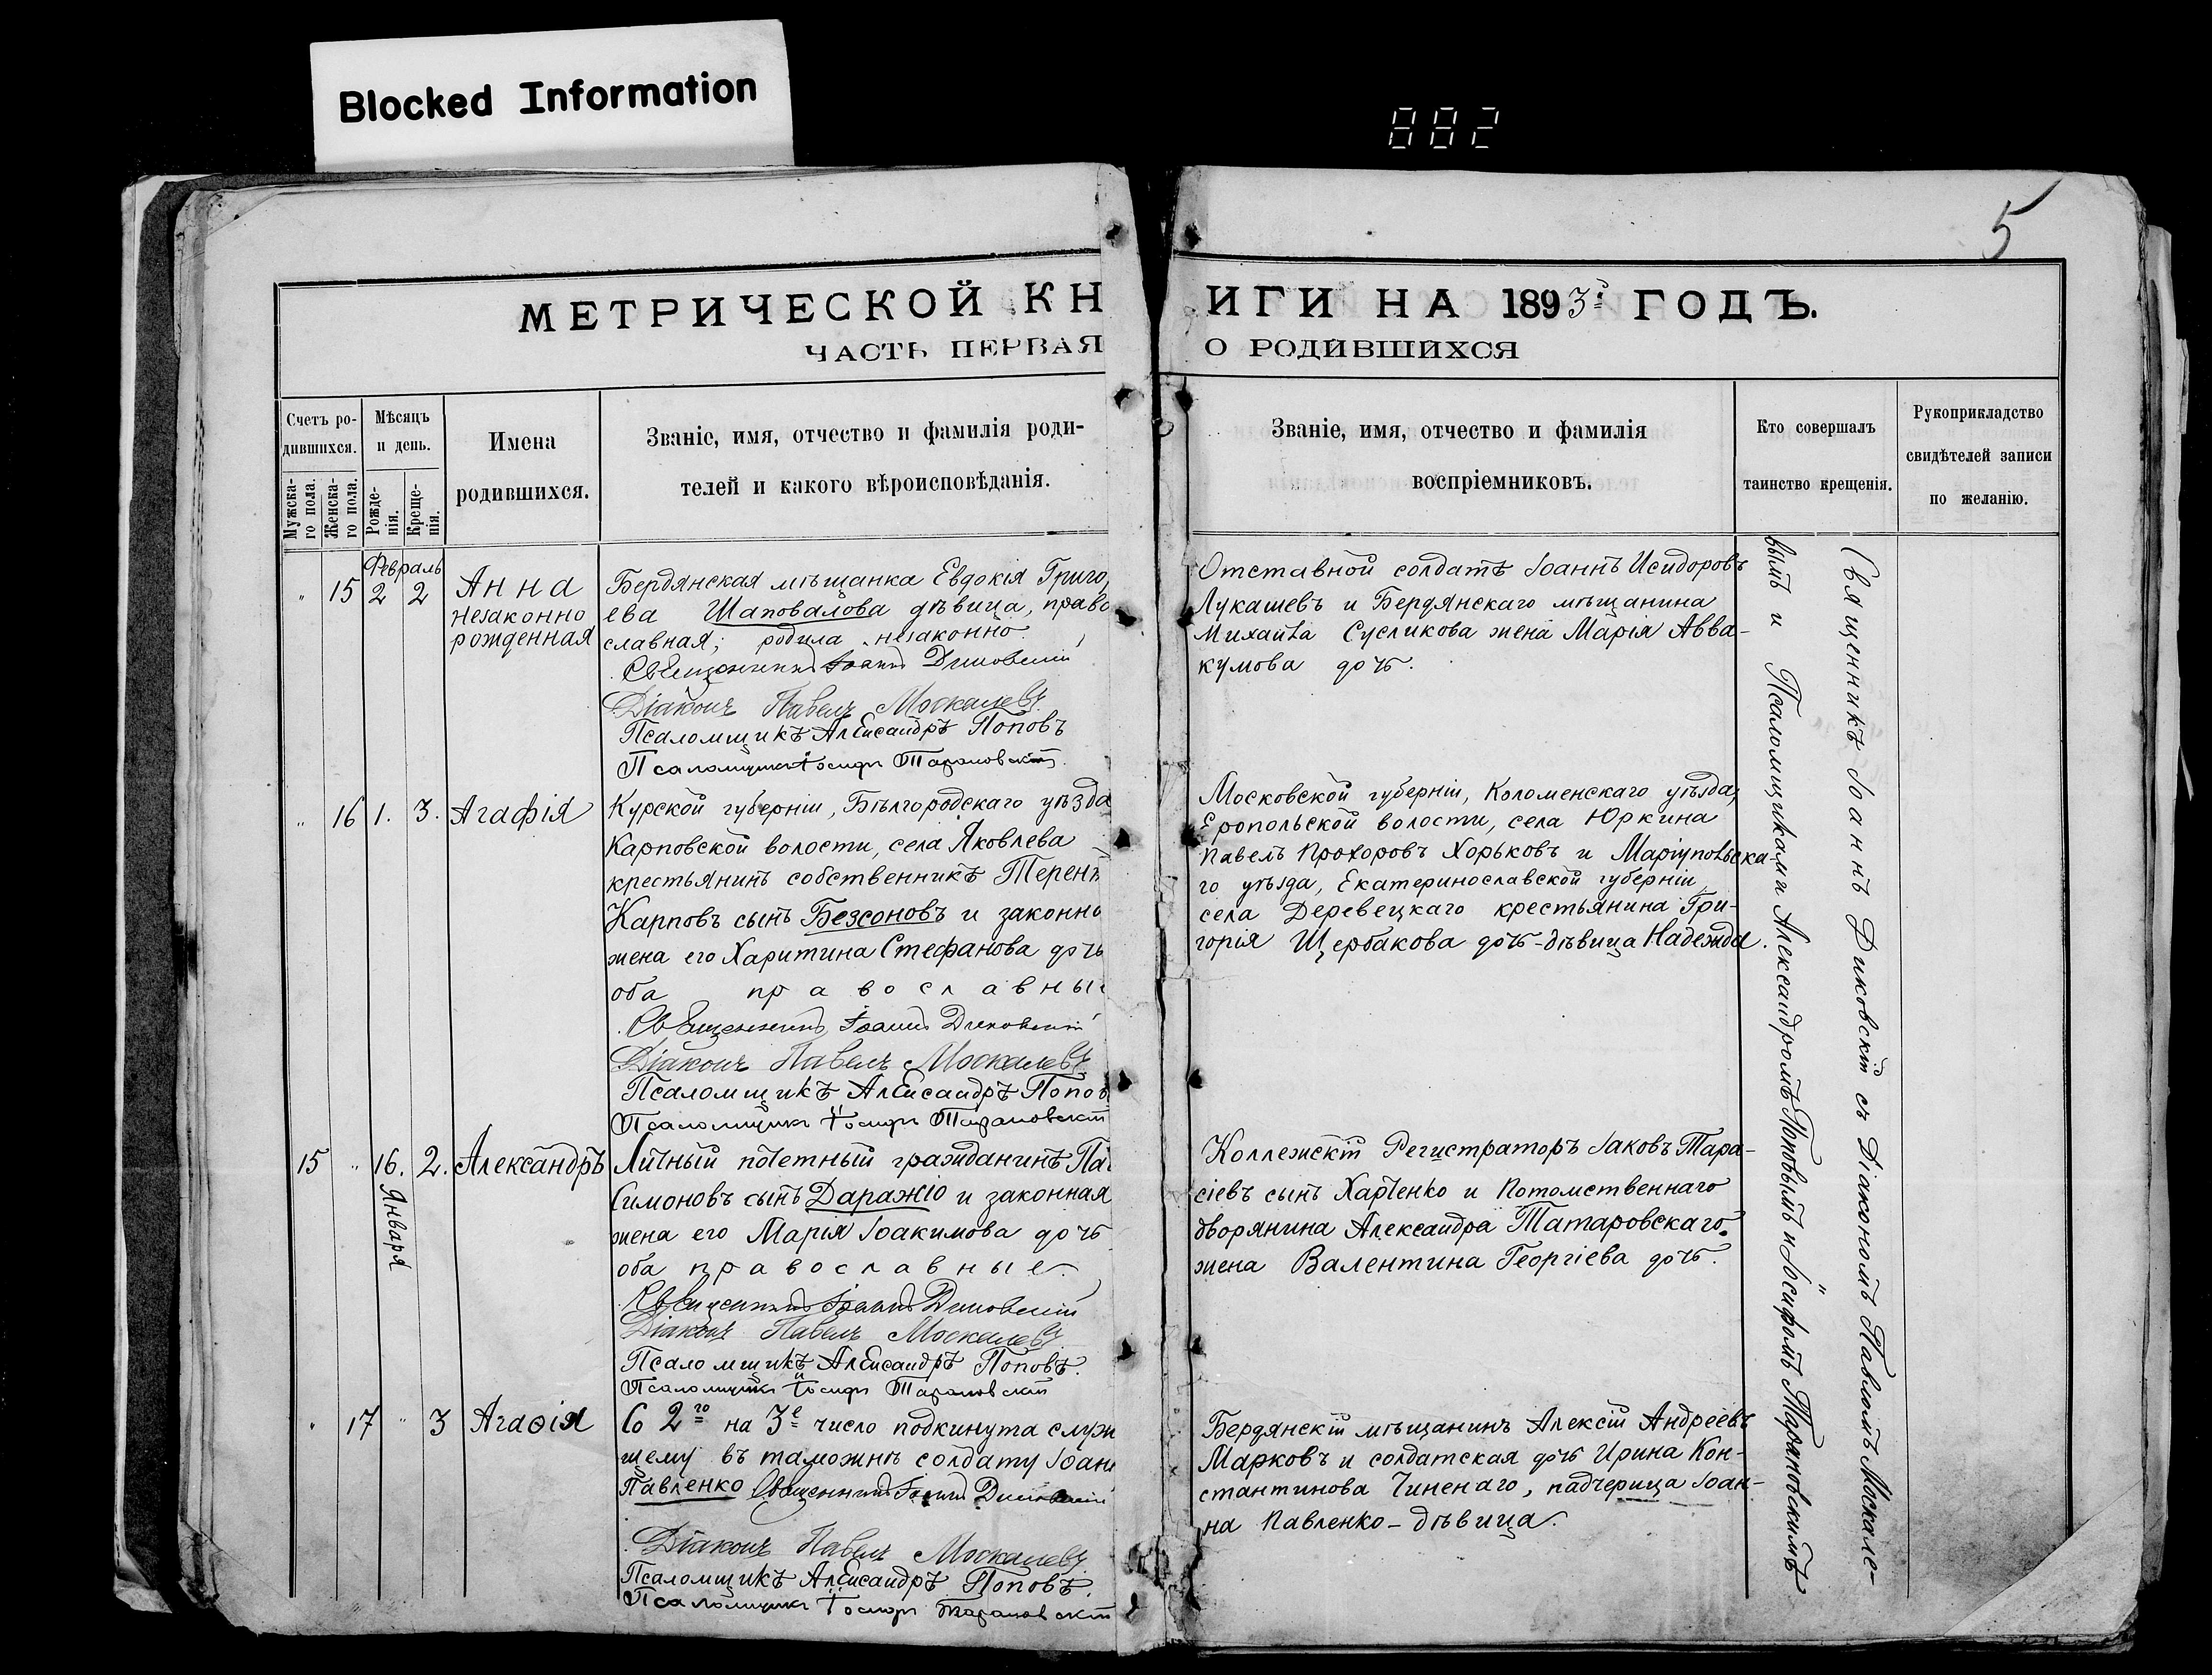 Blocked Information
882
5
МЕТРИЧЕСКОЙ КН
ИГИ НА 1893 ГОДЪ.
ЧАСТЬ ПЕРВАЯ
О РОДИВШИХСЯ
Счетъ ро-
дившихся.
Мужска-
го пола.
Женска-
го пола.
Мѣсяцъ
и день.
Рожде-
нія.
Креще-
нія.
Имена
родившихся.
Званіе, имя, отчество и фамилія роди-
телей и какого вѣроисповѣданія.
Званіе, имя, отчество и фамилія
воспріемниковъ.
Кто совершалъ
таинство крещенія.
Рукоприкладство
свидѣтелей записи
по желанію.
Февраль
„ 15 2 2
Анна
незаконно
рожденная
Бердянская мѣщанка Евдокія Григо,
ева Шаповалова дѣвица, право
славная; родила незаконно.
Священникъ Іоаннъ Диковскій
Діаконъ Павелъ Москалевъ
Псаломщикъ Александръ Поповъ
Псаломщикъ Іосифъ Тарановскій
Отставной солдатъ Іоаннъ Исидоровъ
Лукашевъ и Бердянскаго мѣщанина
Михаила Сусликова жена Марія Авва-
кумова дочь.
„ 16 1. 3. Агафія
Курской губерніи, Бѣлгородскаго уѣзда
Карповской волости, села Яковлева
крестьянинъ собственникъ Терент
Карповъ сынъ Безсоновъ и законно
жена его Харитина Стефанова дочь
оба православны
Священникъ Іоаннъ Диковскій
Діаконъ Павелъ Москалевъ
Псаломщикъ Александръ Попов
Псаломщикъ Іосифъ Тарановскій
Московской губерніи, Коломенскаго уѣзда,
Еропольской волости, села Юркина
Павелъ Прохоровъ Хорьковъ и Маріупольска-
го уѣзда, Екатеринославской губерніи
села Деревецкаго крестьянина Гри-
горія Щербакова дочь-дѣвица Надежда.
15 „ 16. 2. Александръ
Января
Личный почетный гражданинъ Па
Симоновъ сынъ Даражіо и законная
жена его Марія Іоакимова дочь
оба православные.
Священникъ Іоаннъ Диковскій
Діаконъ Павелъ Москалевъ
Псаломщикъ Александръ Поповъ.
Псаломщикъ Іосифъ Тарановскій
Коллежскій Регистраторъ Іаковъ Тара-
сіевъ сынъ Харченко и Потомственнаго
дворянина Александра Татаровскаго
жена Валентина Георгіева дочь.
„ 17 „ 3 Агаѳія
Со 2го на 3е число подкинута служ
шему въ таможнѣ солдату Іоан
Павленко Священникъ Іоаннъ Диковскій
Діаконъ Павелъ Москалевъ
Псаломщикъ Александръ Поповъ.
Псаломщикъ Іосифъ Тарановскій
Бердянскій мѣщанинъ Алексій Андреевъ
Марковъ и солдатская дочь Ирина Кон-
стантинова Чиненаго, падчерица Іоан-
на Павленко - дѣвица.
Священникъ Іоаннъ Диковскій съ Діакономъ Павломъ Москале-
вымъ и Псаломщиками Александромъ Поповымъ и Іосифомъ Тарановскимъ